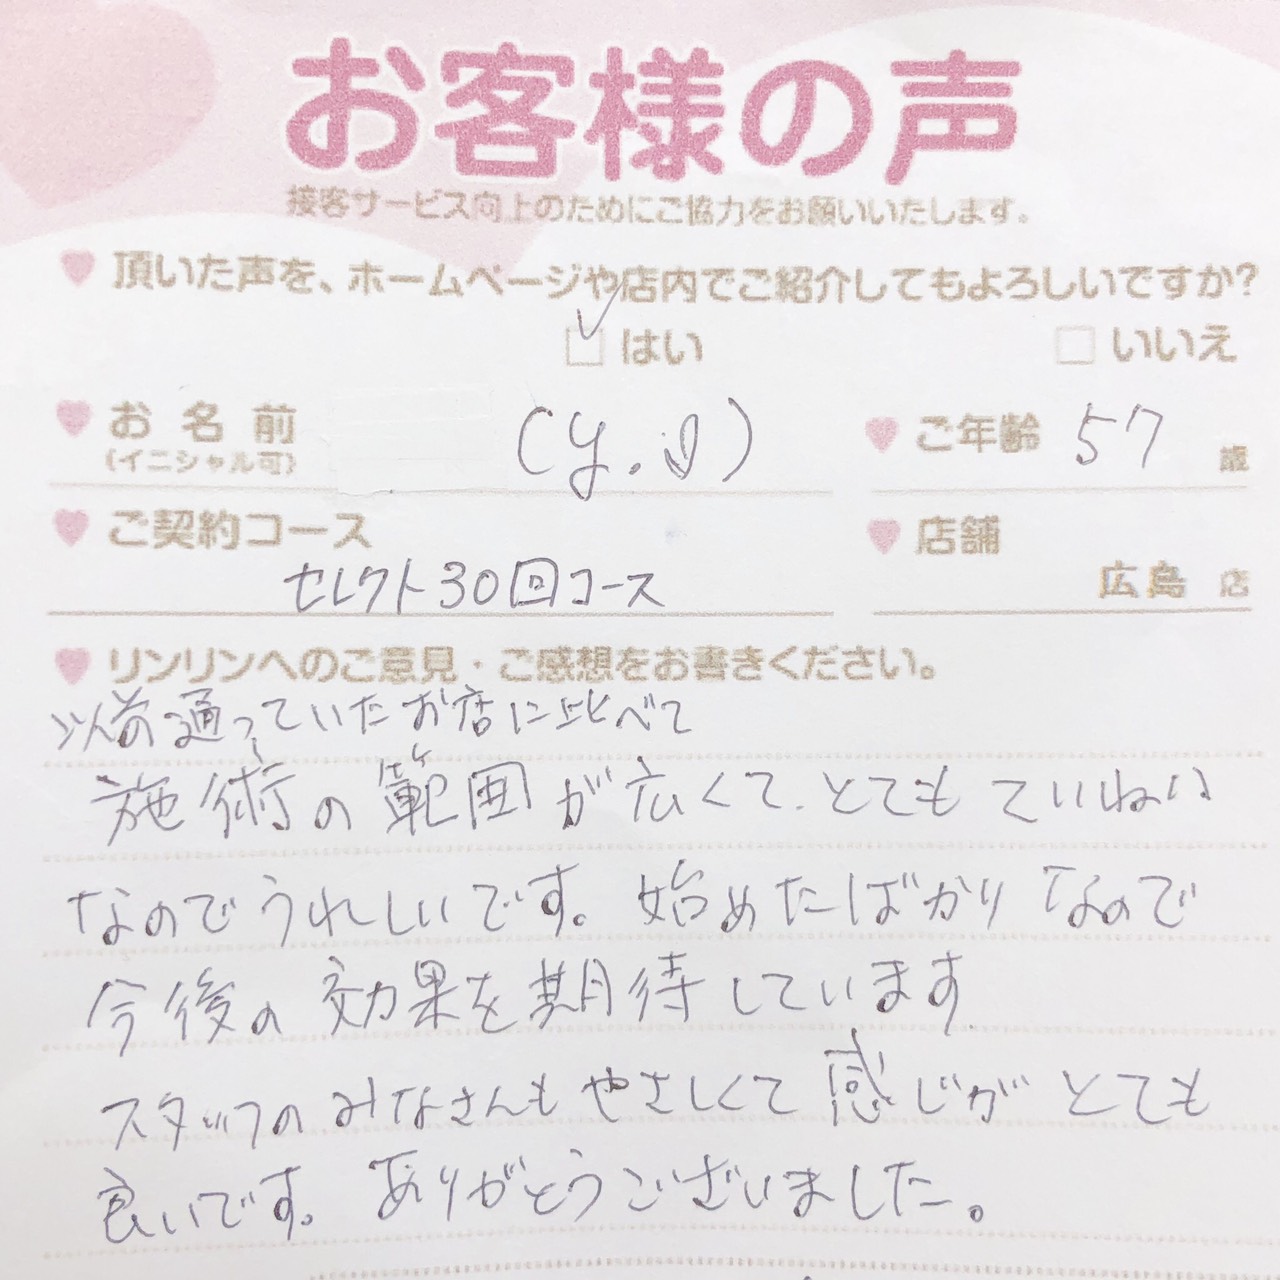 お客様の声
接客サービス向上のためにご協力をお願いいたします。
頂いた声を、ホームページや店内でご紹介してもよろしいですか?
はい いいえ
お名前 (y. ) ご年齢 57 歳
(イニシャル可)
ご契約コース 店舗
セレクト30回コース 広島 店
リンリンへのご意見・ご感想をお書きください。
以前通っていたお店に比べて
施術の範囲が広くて、とてもていねい
なのでうれしいです。始めたばかりなので
今後の効果を期待しています.
スタッフのみなさんもやさしくて感じがとても
良いです。ありがとうございました。